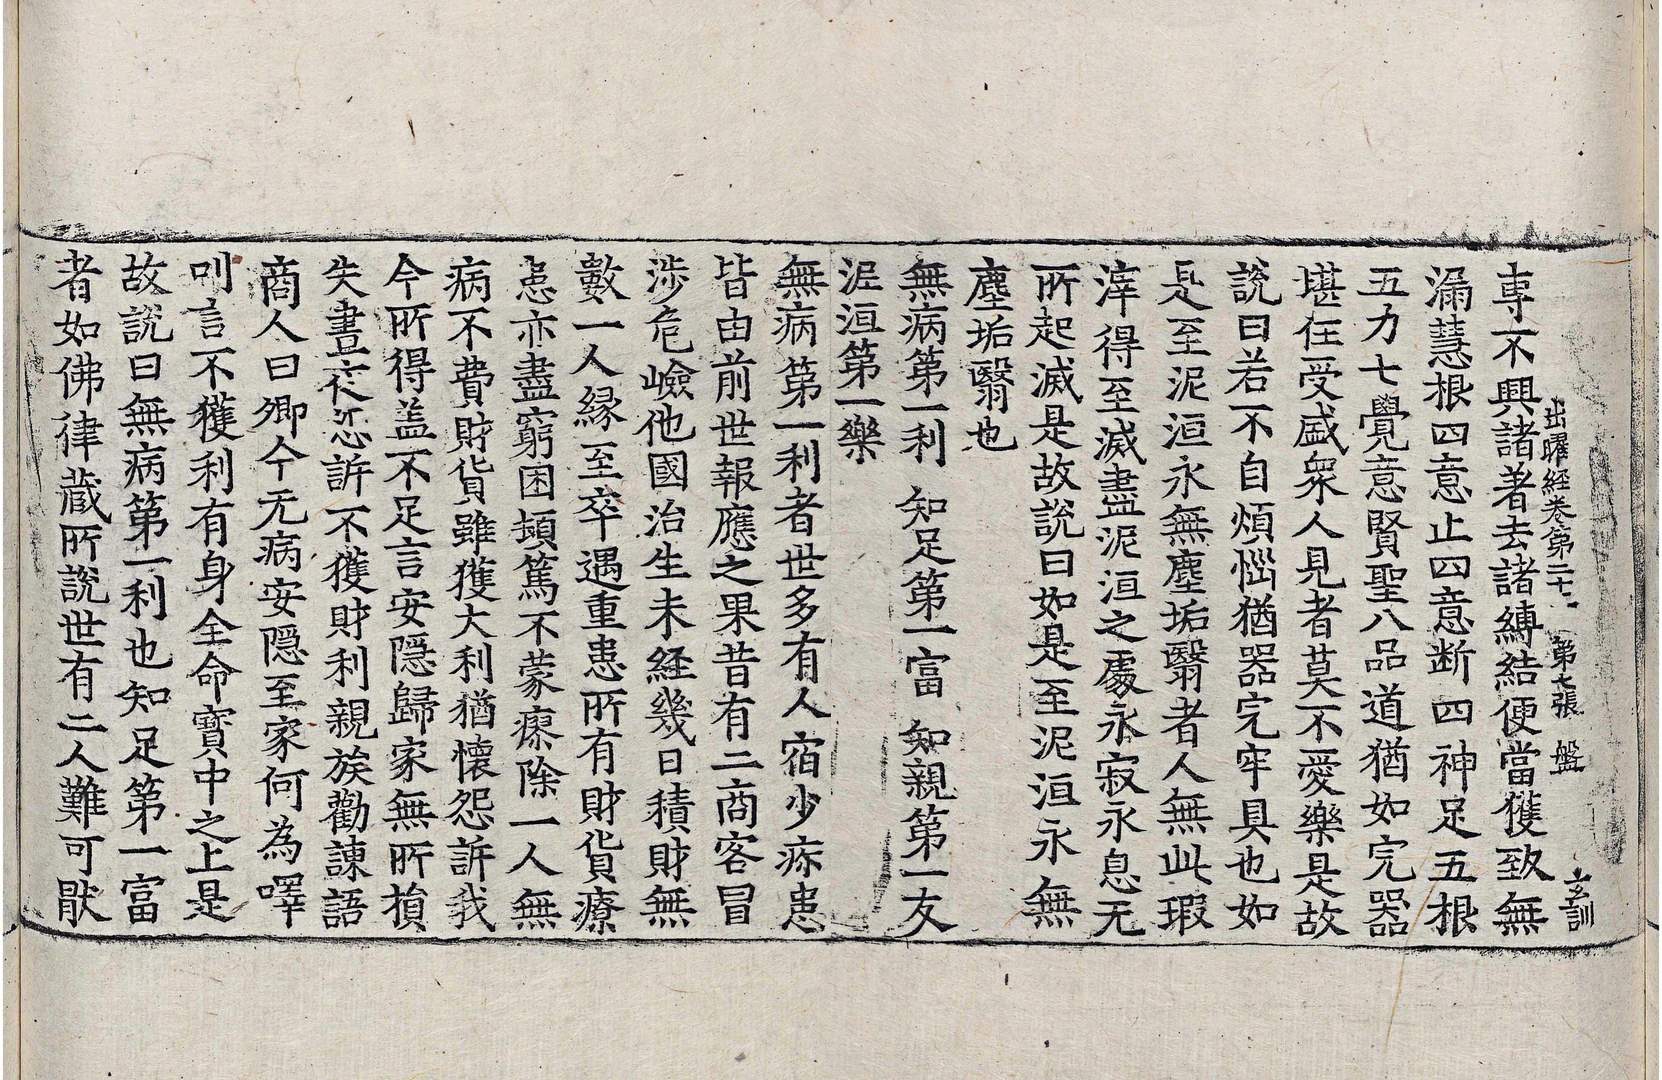 出曜経卷第二十二 第七張 盤 玄訓
專不興諸著去諸縛結便當獲致無
漏慧根四意止四意断四神足五根
五力七覺意賢聖八品道猶如完器
堪任受盛衆人見者莫不愛樂是故
說曰若不自煩惱猶器完牢具也如
是至泥洹永無塵垢翳者人無此瑕
滓得至滅盡泥洹之處永寂永息无
所起滅是故說曰如是至泥洹永無
塵垢翳也
無病第一利 知足第一富 知親第一友
泥洹第一樂
無病第一利者世多有人宿少疹患
皆由前世報應之果昔有二商客冒
涉危嶮他國治生未経幾日積財無
數一人緣至卒遇重患所有財貨療
患亦盡窮困頓篤不蒙瘳除一人無
病不費財貨雖獲大利猶懷怨訴我
今所得盖不足言安隱歸家無所損
失晝夜忿訴不獲財利親族勸諫語
商人曰卿今无病安隱至家何為㘁
叫言不獲利有身全命寶中之上是
故說曰無病第一利也知足第一富
者如佛律藏所說世有二人難可猒